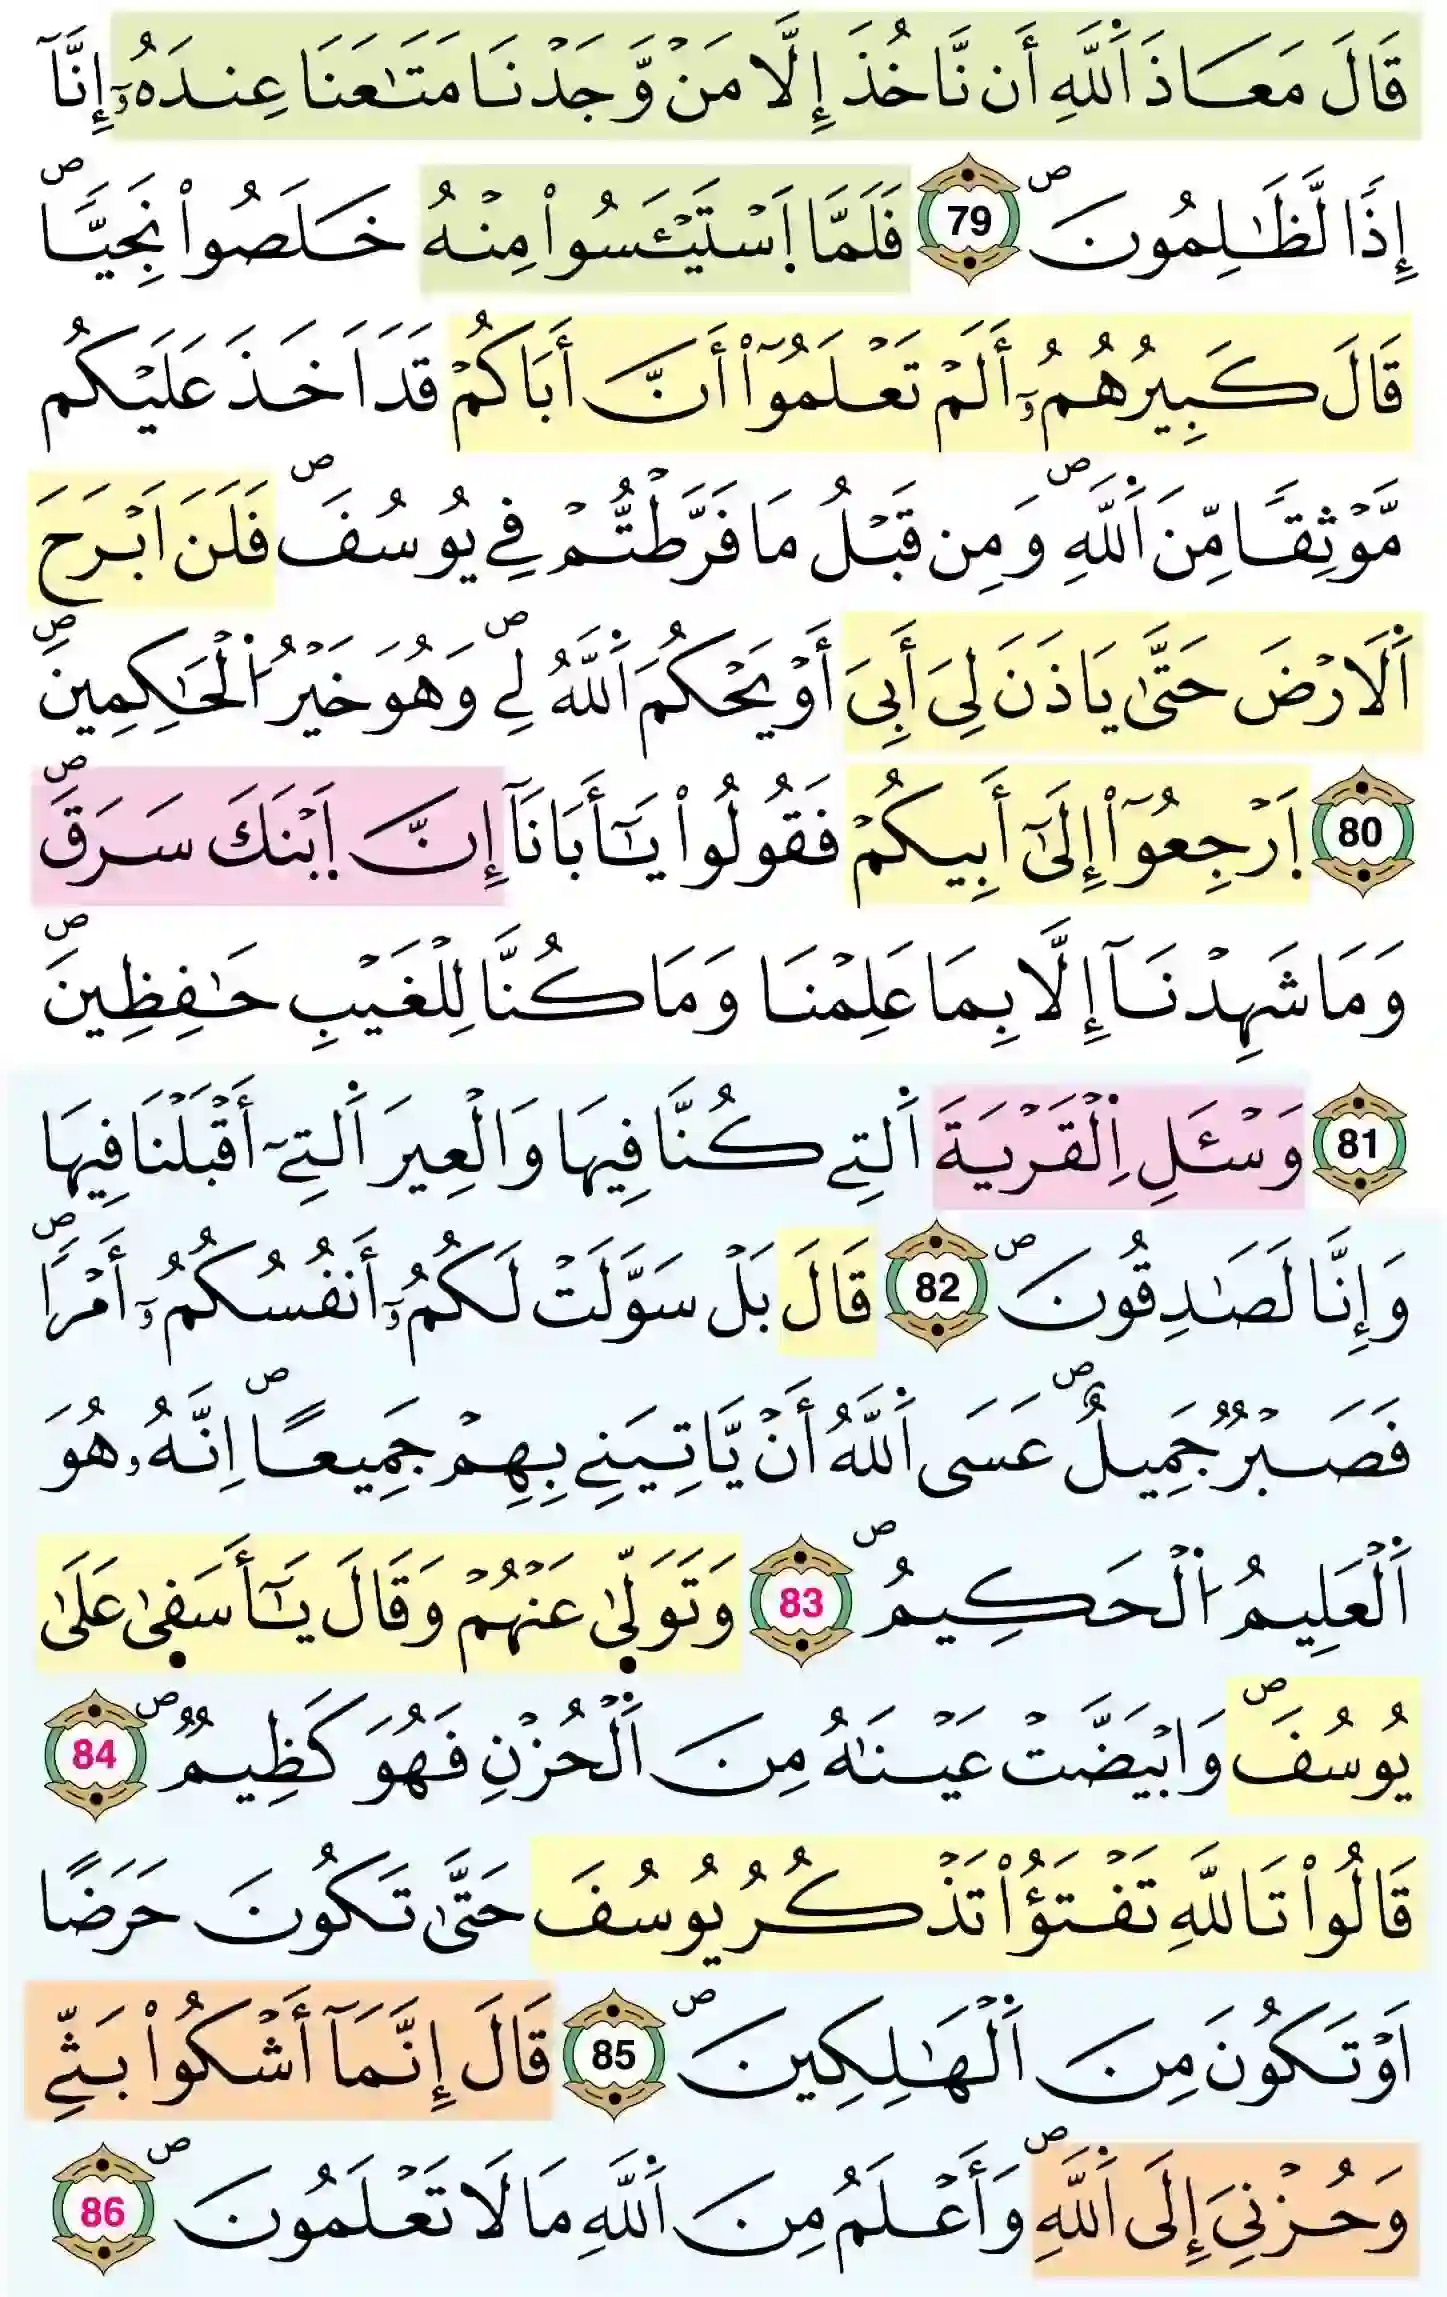 قَالَ مَعَاذَ اَ۬للَّهِ أَن نَّاخُذَ إِلَّا مَنْ وَّجَدْنَا مَتَٰعَنَا عِندَهُۥٓ إِنَّآ
إِذاٗ لَّظَٰلِمُونَۖ 79 فَلَمَّا اَ۪سْتَيْـَٔسُواْ مِنْهُ خَلَصُواْ نَجِيّاٗۖ
قَالَ كَبِيرُهُمُۥٓ أَلَمْ تَعْلَمُوٓاْ أَنَّ أَبَاكُمْ قَدَ اَخَذَ عَلَيْكُم
مَّوْثِقاٗ مِّنَ اَ۬للَّهِۖ وَمِن قَبْلُ مَا فَرَّطتُّمْ فِے يُوسُفَۖ فَلَنَ اَبْرَحَ
اَ۬لَارْضَ حَتَّىٰ يَاذَنَ لِيَ أَبِيَ أَوْ يَحْكُمَ اَ۬للَّهُ لِےۖ وَهُوَ خَيْرُ اُ۬لْحَٰكِمِينَۖ
80 اَ۪رْجِعُوٓاْ إِلَىٰٓ أَبِيكُمْ فَقُولُواْ يَٰٓأَبَانَآ إِنَّ اَ۪بْنَكَ سَرَقَۖ
وَمَا شَهِدْنَآ إِلَّا بِمَا عَلِمْنَا وَمَا كُنَّا لِلْغَيْبِ حَٰفِظِينَۖ
81 وَسْـَٔلِ اِ۬لْقَرْيَةَ اَ۬لتِے كُنَّا فِيهَا وَالْعِيرَ اَ۬لتِےٓ أَقْبَلْنَا فِيهَا
وَإِنَّا لَصَٰدِقُونَۖ 82 قَالَ بَلْ سَوَّلَتْ لَكُمُۥٓ أَنفُسُكُمُۥٓ أَمْراٗۖ
فَصَبْرٞ جَمِيلٌۖ عَسَى اَ۬للَّهُ أَنْ يَّاتِيَنِے بِهِمْ جَمِيعاًۖ اِنَّهُۥ هُوَ
اَ۬لْعَلِيمُ اُ۬لْحَكِيمُۖ 83 وَتَوَلّ۪ىٰ عَنْهُمْ وَقَالَ يَٰٓأَسَف۪ىٰ عَلَىٰ
يُوسُفَۖ وَابْيَضَّتْ عَيْنَٰهُ مِنَ اَ۬لْحُزْنِ فَهُوَ كَظِيمٞۖ 84
قَالُواْ تَاللَّهِ تَفْتَؤُاْ تَذْكُرُ يُوسُفَ حَتَّىٰ تَكُونَ حَرَضاً
اَوْ تَكُونَ مِنَ اَ۬لْهَٰلِكِينَۖ 85 قَالَ إِنَّمَآ أَشْكُواْ بَثِّے
وَحُزْنِيَ إِلَى اَ۬للَّهِۖ وَأَعْلَمُ مِنَ اَ۬للَّهِ مَا لَا تَعْلَمُونَۖ 86